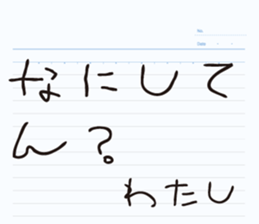 No.
Date
なにして
ん?
わたし